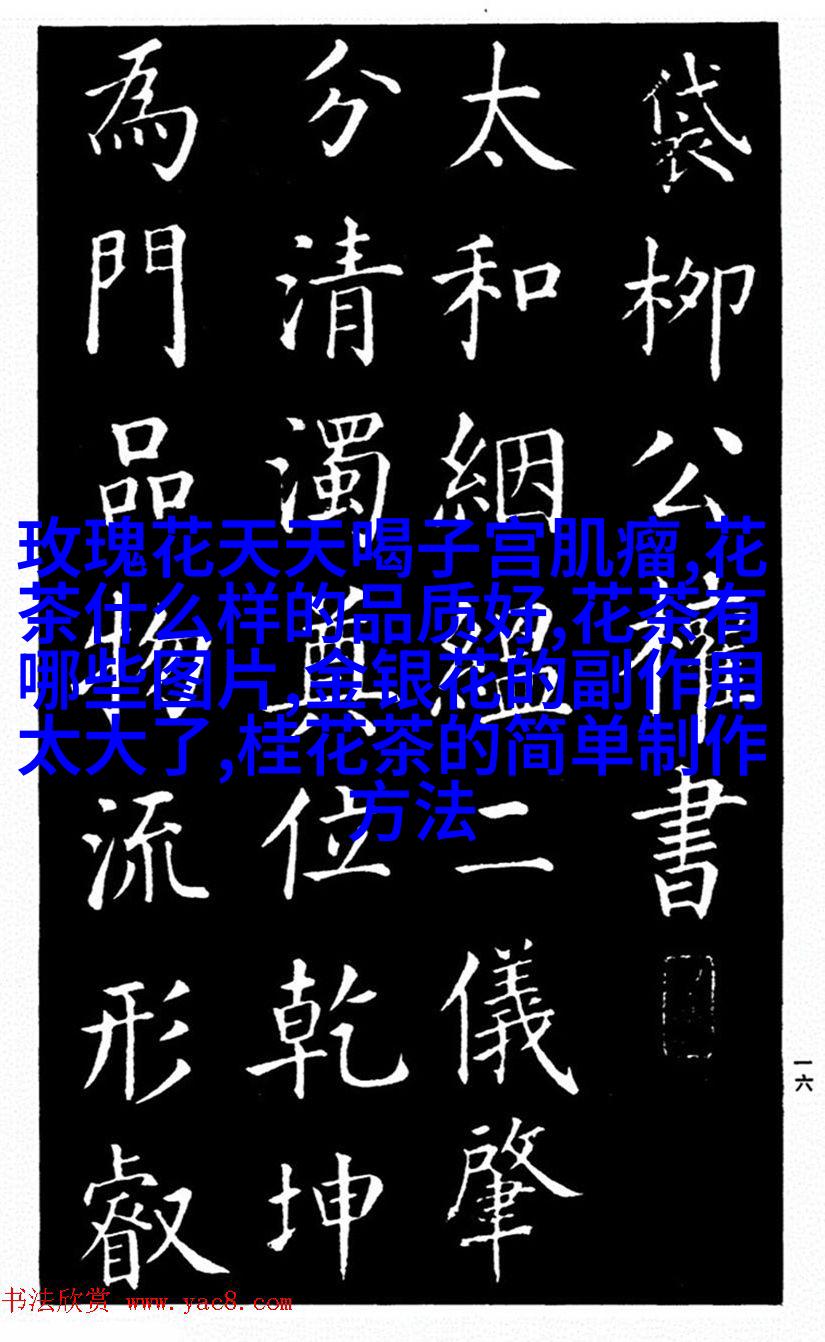 袋柳公權書
太和絪縕二儀肇
分清濁奠位乾坤
為門品物流形叡
玫瑰花天天喝子宫肌瘤,花
茶什么样的品质好,花茶有
哪些图片,金银花的副作用
太大了,桂花茶的简单制作
方法
一六
书法欣赏 www.yac8.com